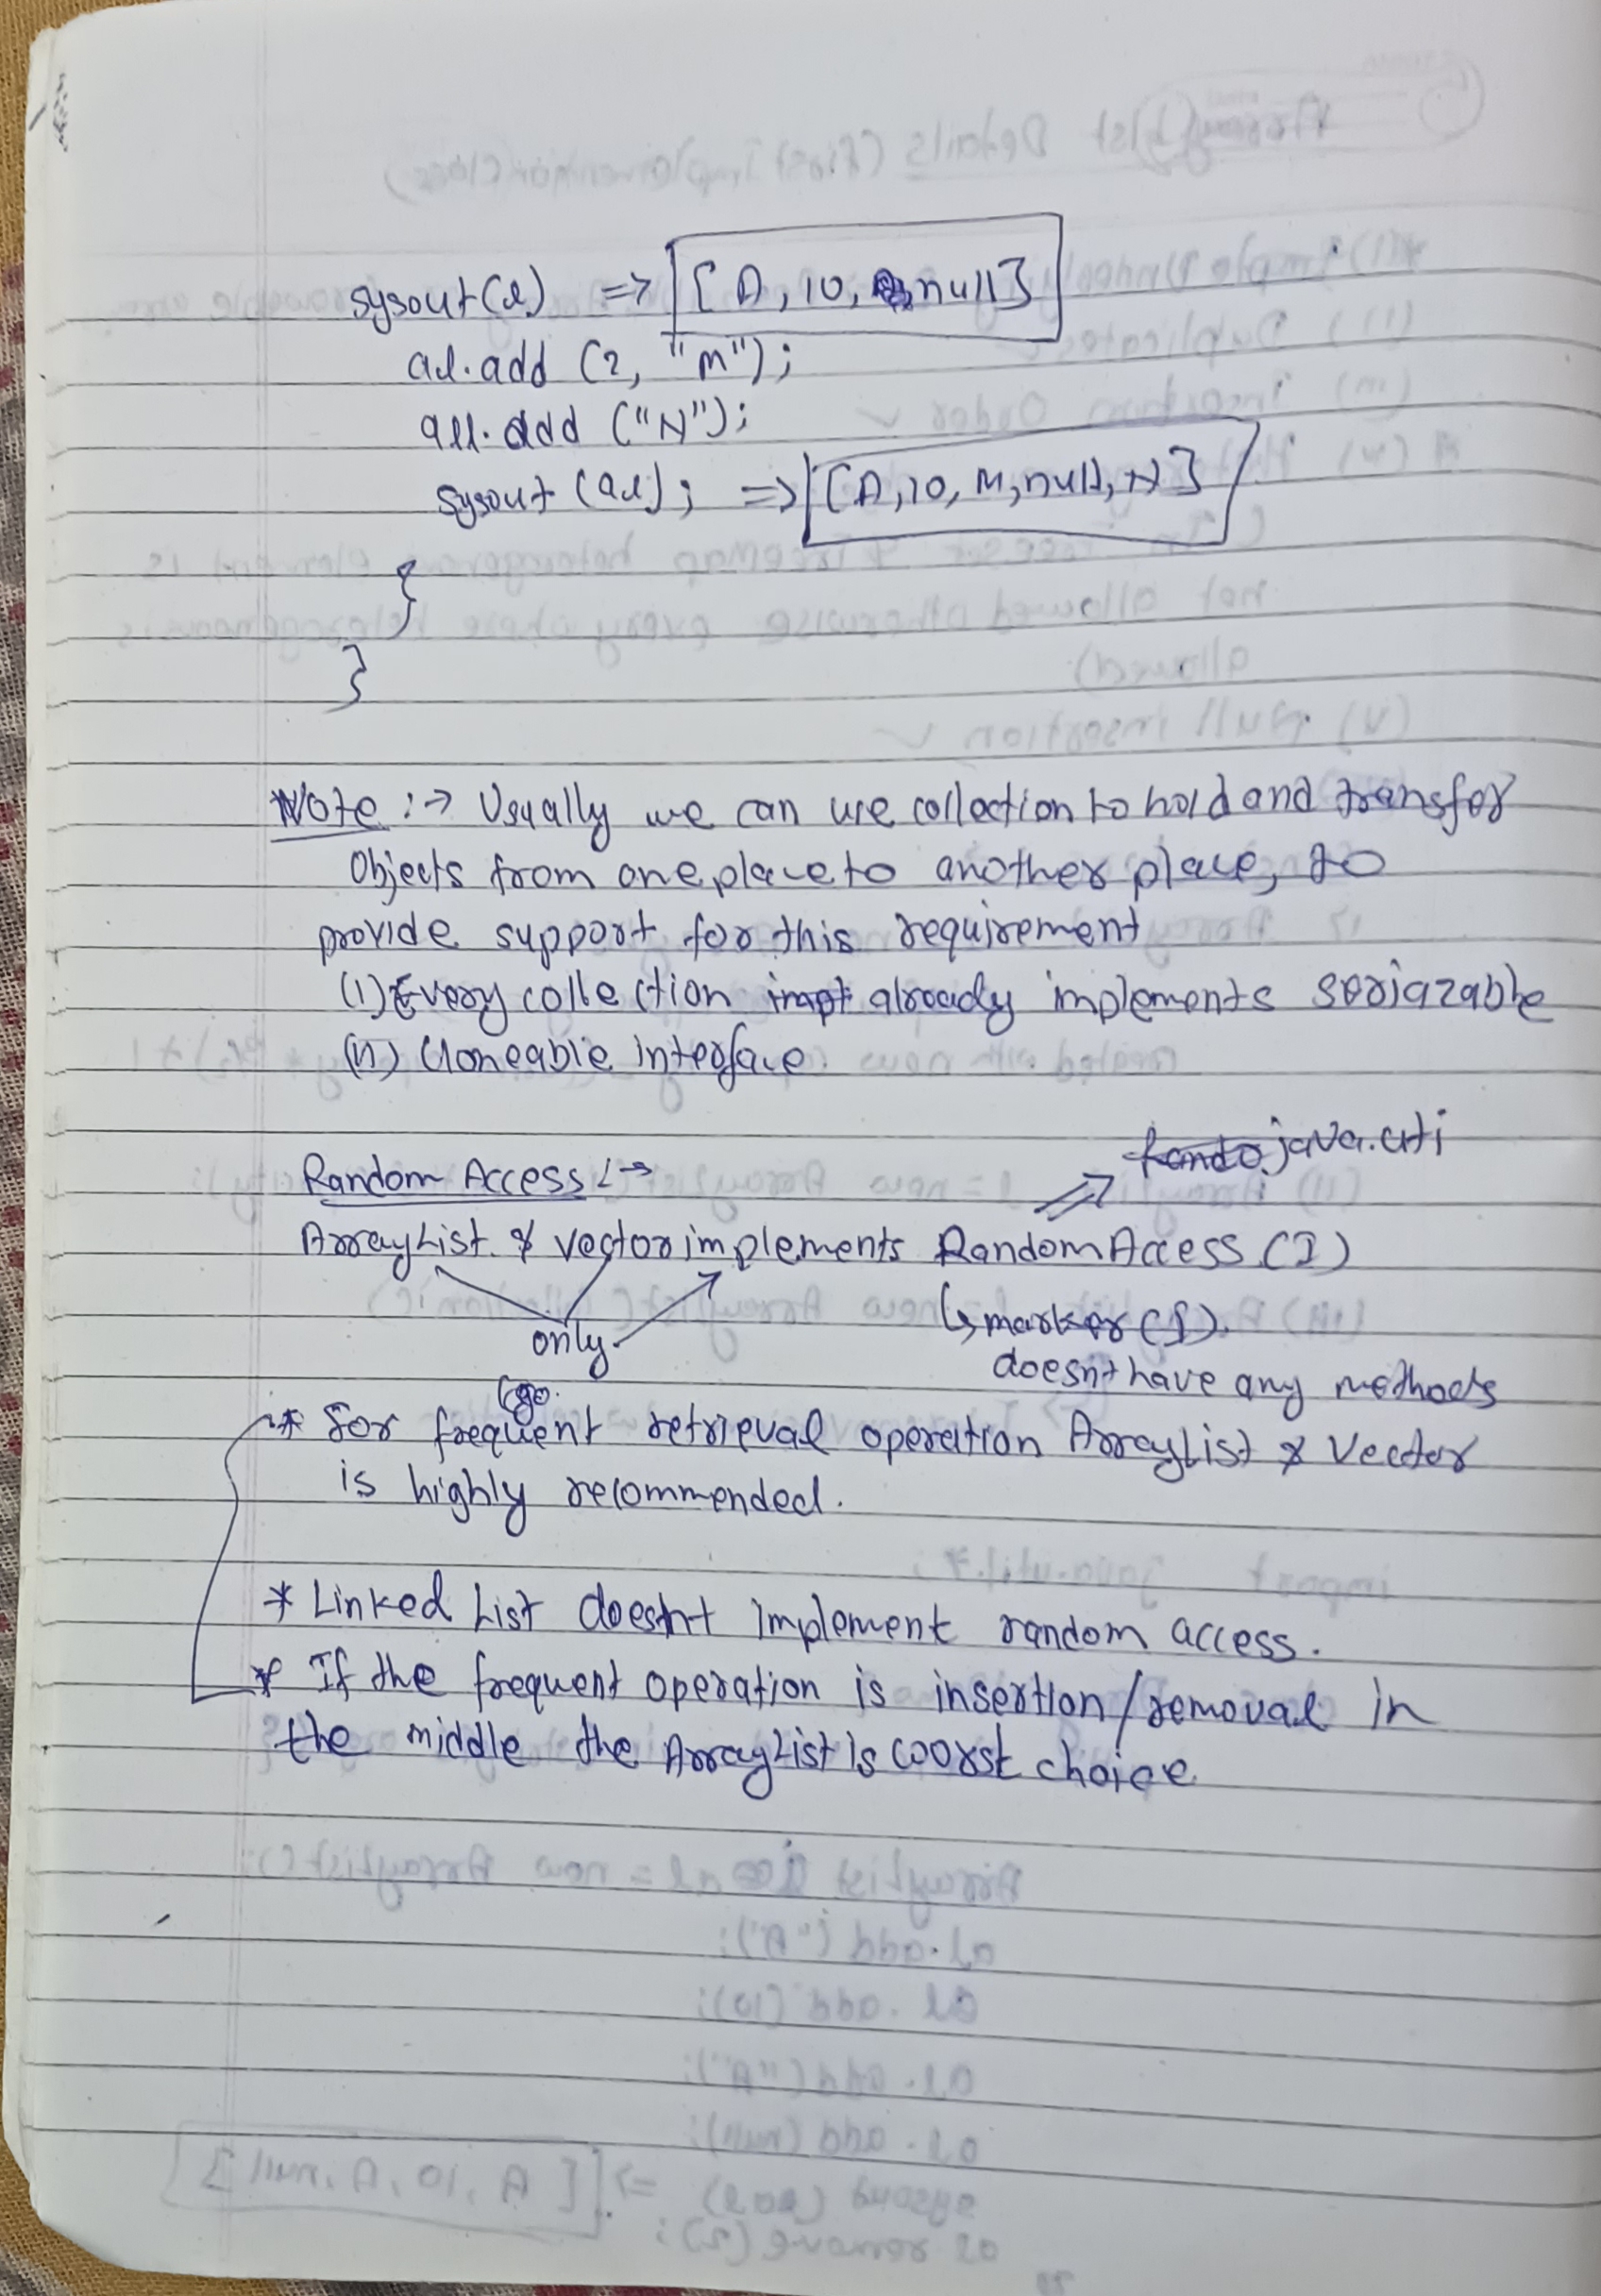 sysout(l) => [A, 10, null]
al.add (2, "M");
all.add ("N");
sysout (al); => [A, 10, M, null, N]
}
}
Note :→ Usually we can use collection to hold and transfor
Objects from one place to another place, to
provide support for this requirement
(I) Every collection impt already implements seriazable
(II) Cloneable interface
Rando java.uti
Random Access :→
ArrayList & vector implements RandomAccess (I)
only
↳ marker (I).
doesn't have any methods
* For frequent retrieval operation ArrayList & Vector
is highly recommended.
* Linked List doesn't implement random access.
* If the frequent operation is insertion/removal in
the middle the ArrayList is worst choice